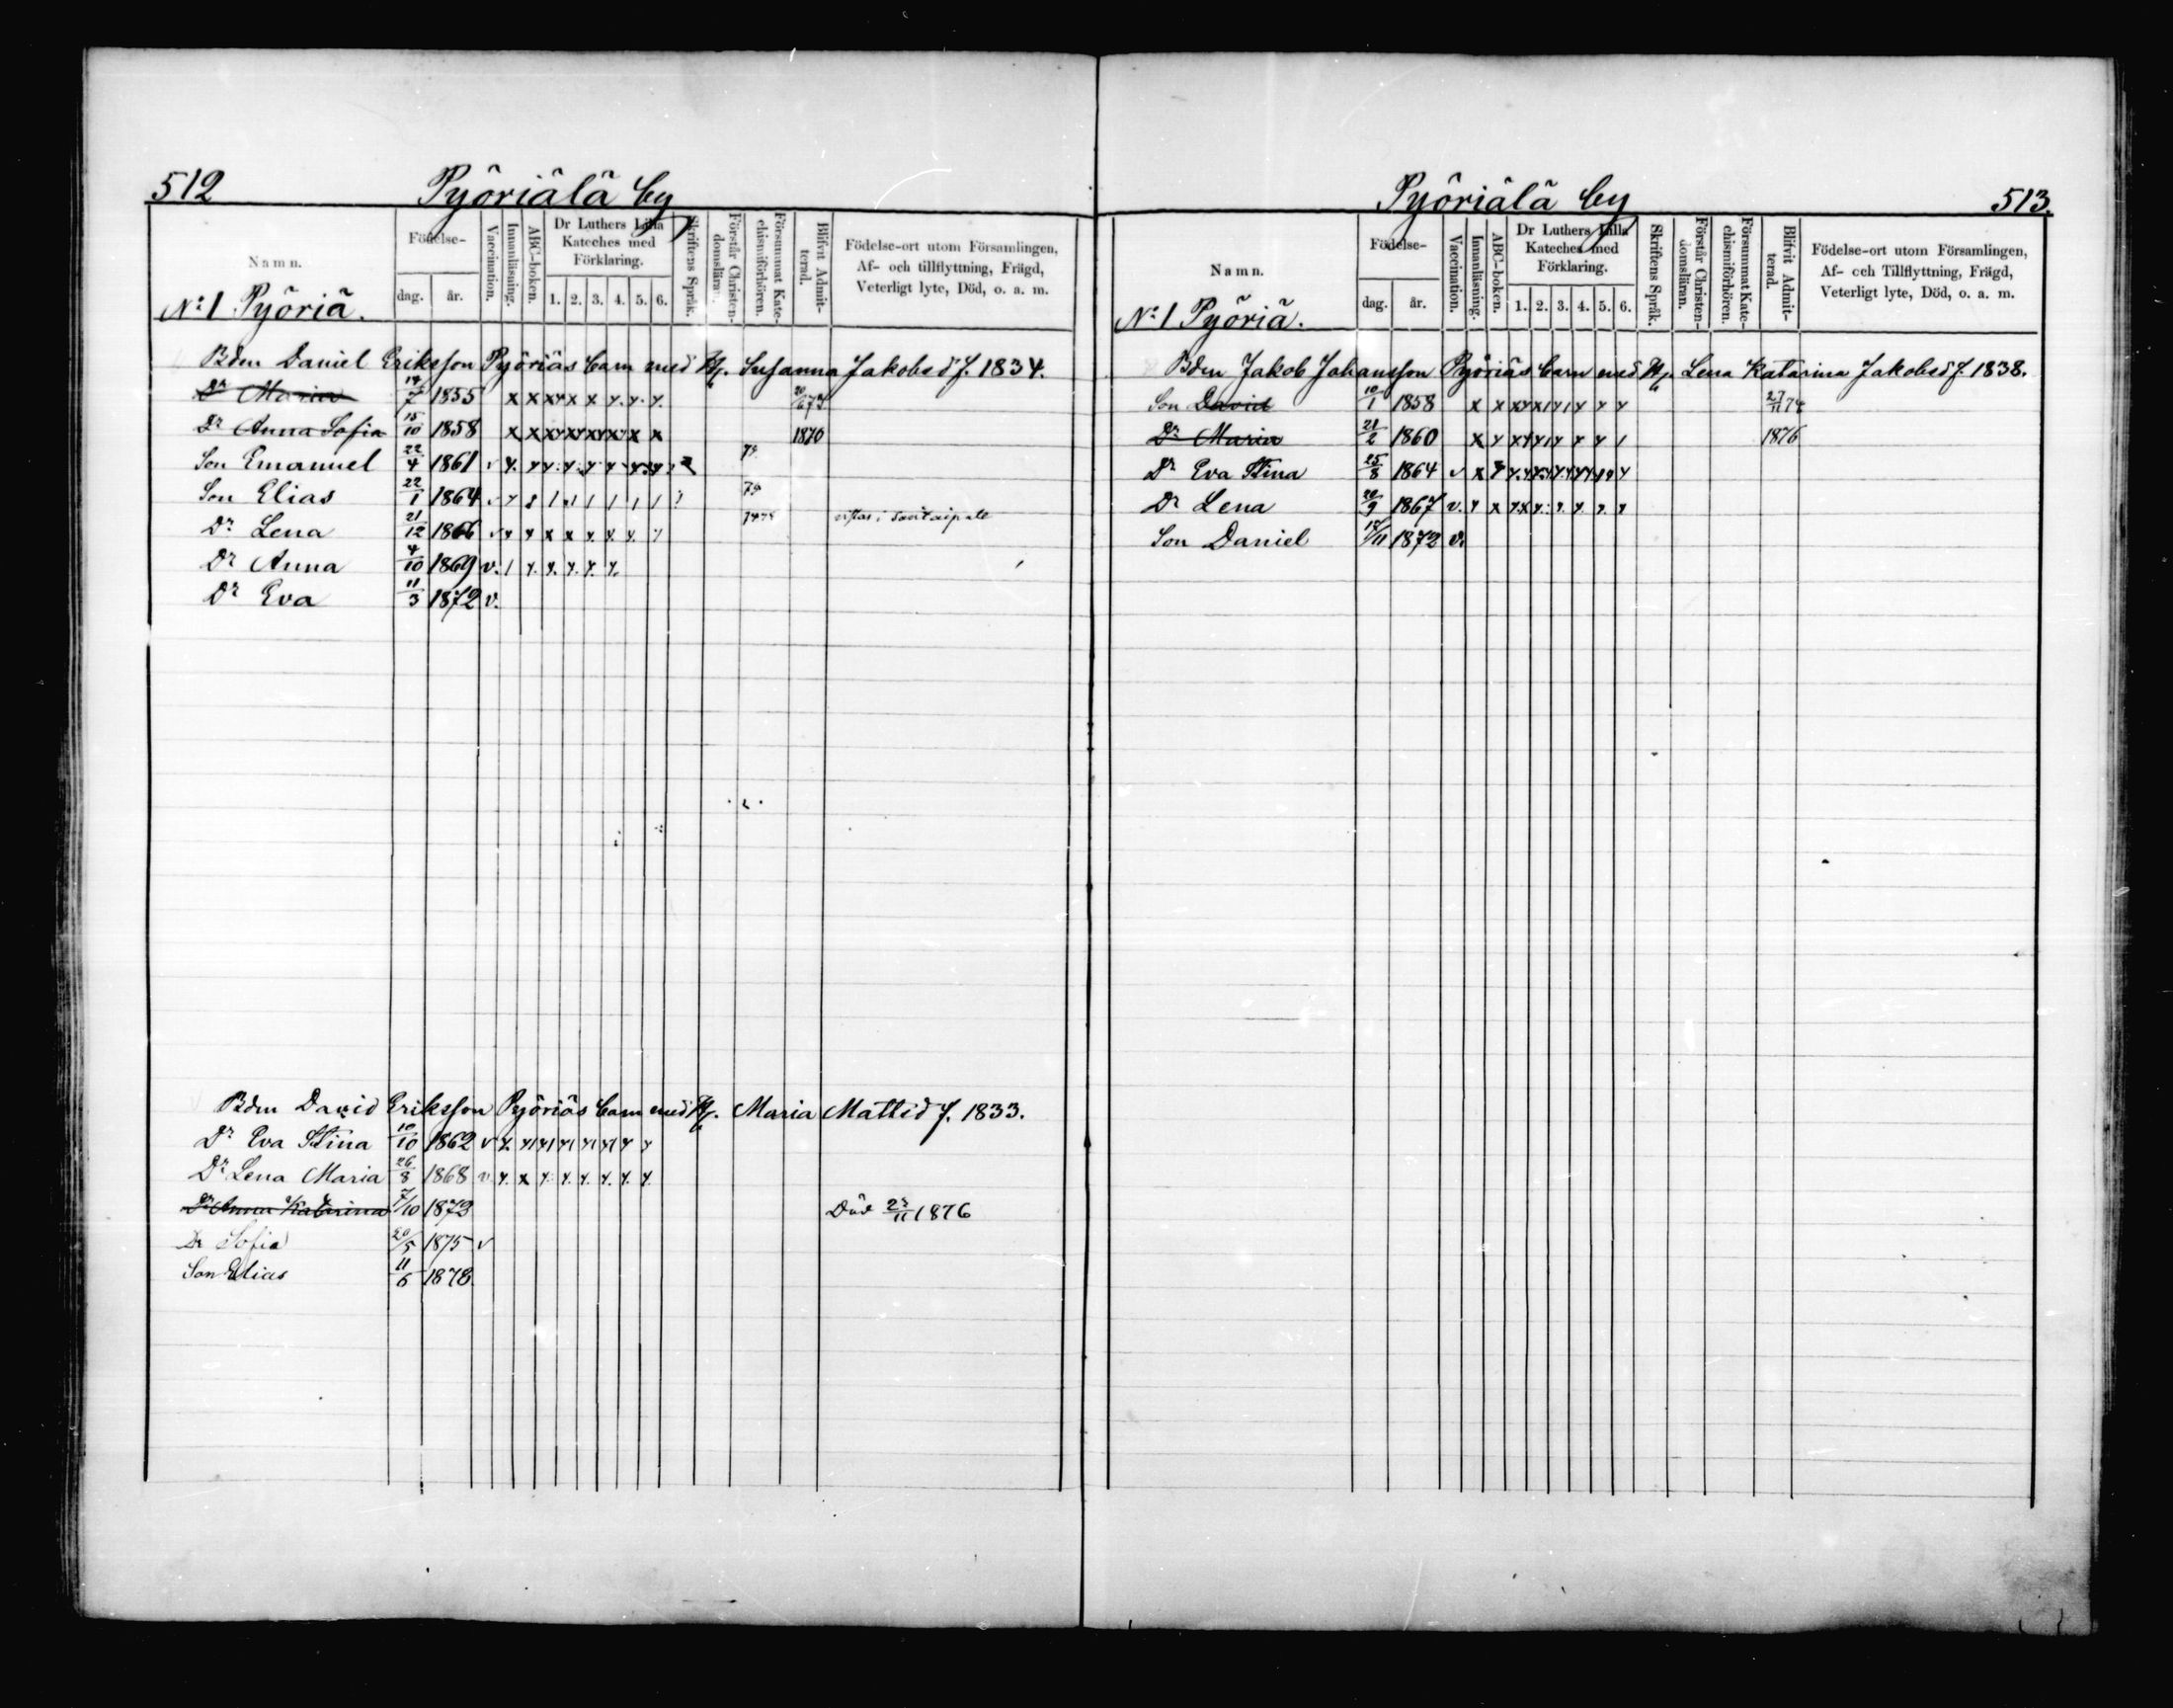 512 Pyöriälä by
Namn. Födelse- dag. år. Vaccination. Innanläsning. ABC-boken. Dr Luthers Lilla Kateches med Förklaring. 1. 2. 3. 4. 5. 6. Skriftens Språk. Förstår Christendomsläran. Försummat Katechismiförhören. Blifvit Admitterad. Födelse-ort utom Församlingen, Af- och tillflyttning, Frägd, Veterligt lyte, Död, o. a. m.
No 1 Pyöriä.
Bdm Daniel Eriksson Pyöriäs barn med H. Susanna Jakobsd f. 1834.
Dr Maria 14/7 1855 x x x x x x y. y. y. 20/6 73
Dr Anna Sofia 15/10 1858 x x x x x x x x x 1870
Son Emanuel 22/4 1861 v y. y y. y. y. y. y. y. 78
Son Elias 22/1 1864 v y 8 1 1 1 1 1 1 79
Dr Lena 21/12 1866 v y y x x y. y. y. y vistas i Savitaipale
Dr Anna 4/10 1869 v. 1 y. y. y. y. y.
Dr Eva 11/3 1872 v.
Bdm David Eriksson Pyöriäs barn med H. Maria Mattsd f. 1833.
Dr Eva Stina 10/10 1862 v y. y1 y1 y1 y1 y1 y y
Dr Lena Maria 26/8 1868 v y. x y. y. y. y. y. y.
Dr Anna Katarina 7/10 1873 Död 23/11 1876
Dr Sofia 20/5 1875 v
Son Elias 11/6 1878
Pyöriälä by 513.
Namn. Födelse- dag. år. Vaccination. Innanläsning. ABC-boken. Dr Luthers Lilla Kateches med Förklaring. 1. 2. 3. 4. 5. 6. Skriftens Språk. Förstår Christendomsläran. Försummat Katechismiförhören. Blifvit Admitterad. Födelse-ort utom Församlingen, Af- och Tillflyttning, Frägd, Veterligt lyte, Död, o. a. m.
No 1 Pyöriä.
Bdm Jakob Johansson Pyöriäs barn med H. Lena Katarina Jakobsd f. 1838.
Son David 10/1 1858 x x xy x1 y1 y y y 27/11 74
Dr Maria 21/2 1860 x y xy y1 y y y 1 1876
Dr Eva Stina 25/8 1864 v x y y.y y.y y.y y.y 1y y
Dr Lena 20/9 1867 v. y x y.x y. y. y. y. y
Son Daniel 17/11 1872 v.